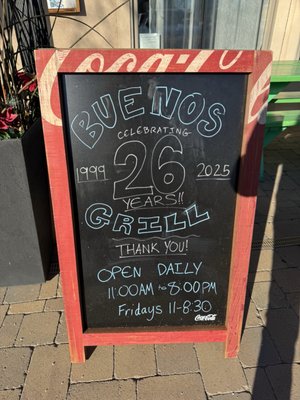 Coca-Cola
BUENOS
CELEBRATING
1999 26 2025
YEARS!!
GRILL
THANK YOU!
OPEN DAILY
11:00AM to 8:00PM
Fridays 11-8:30
Coca-Cola